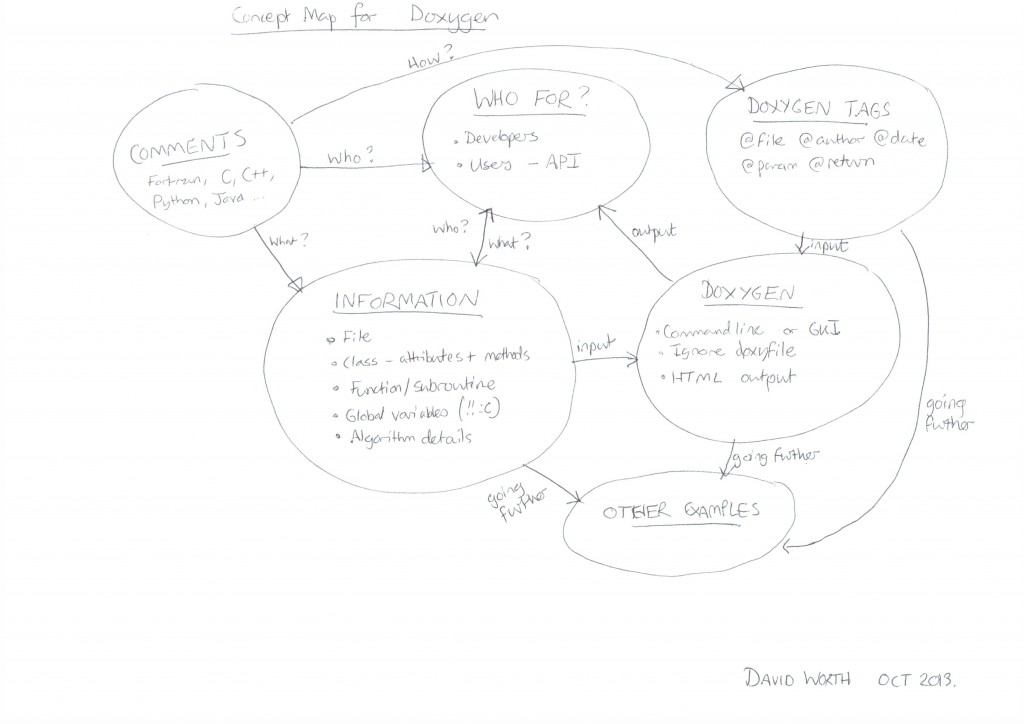 Concept Map for Doxygen
How?
COMMENTS
Fortran, C, C++,
Python, Java ...
Who?
WHO FOR?
• Developers
• Users - API
DOXYGEN TAGS
@file @author @date
@param @return
What?
Who?
What?
output
input
INFORMATION
• File
• Class - attributes + methods
• Function/subroutine
• Global variables (!! :C)
• Algorithm details
input
DOXYGEN
• Command line or GUI
• Ignore doxyfile
• HTML output
going
further
going further
going
further
OTHER EXAMPLES
DAVID WORTH OCT 2013.